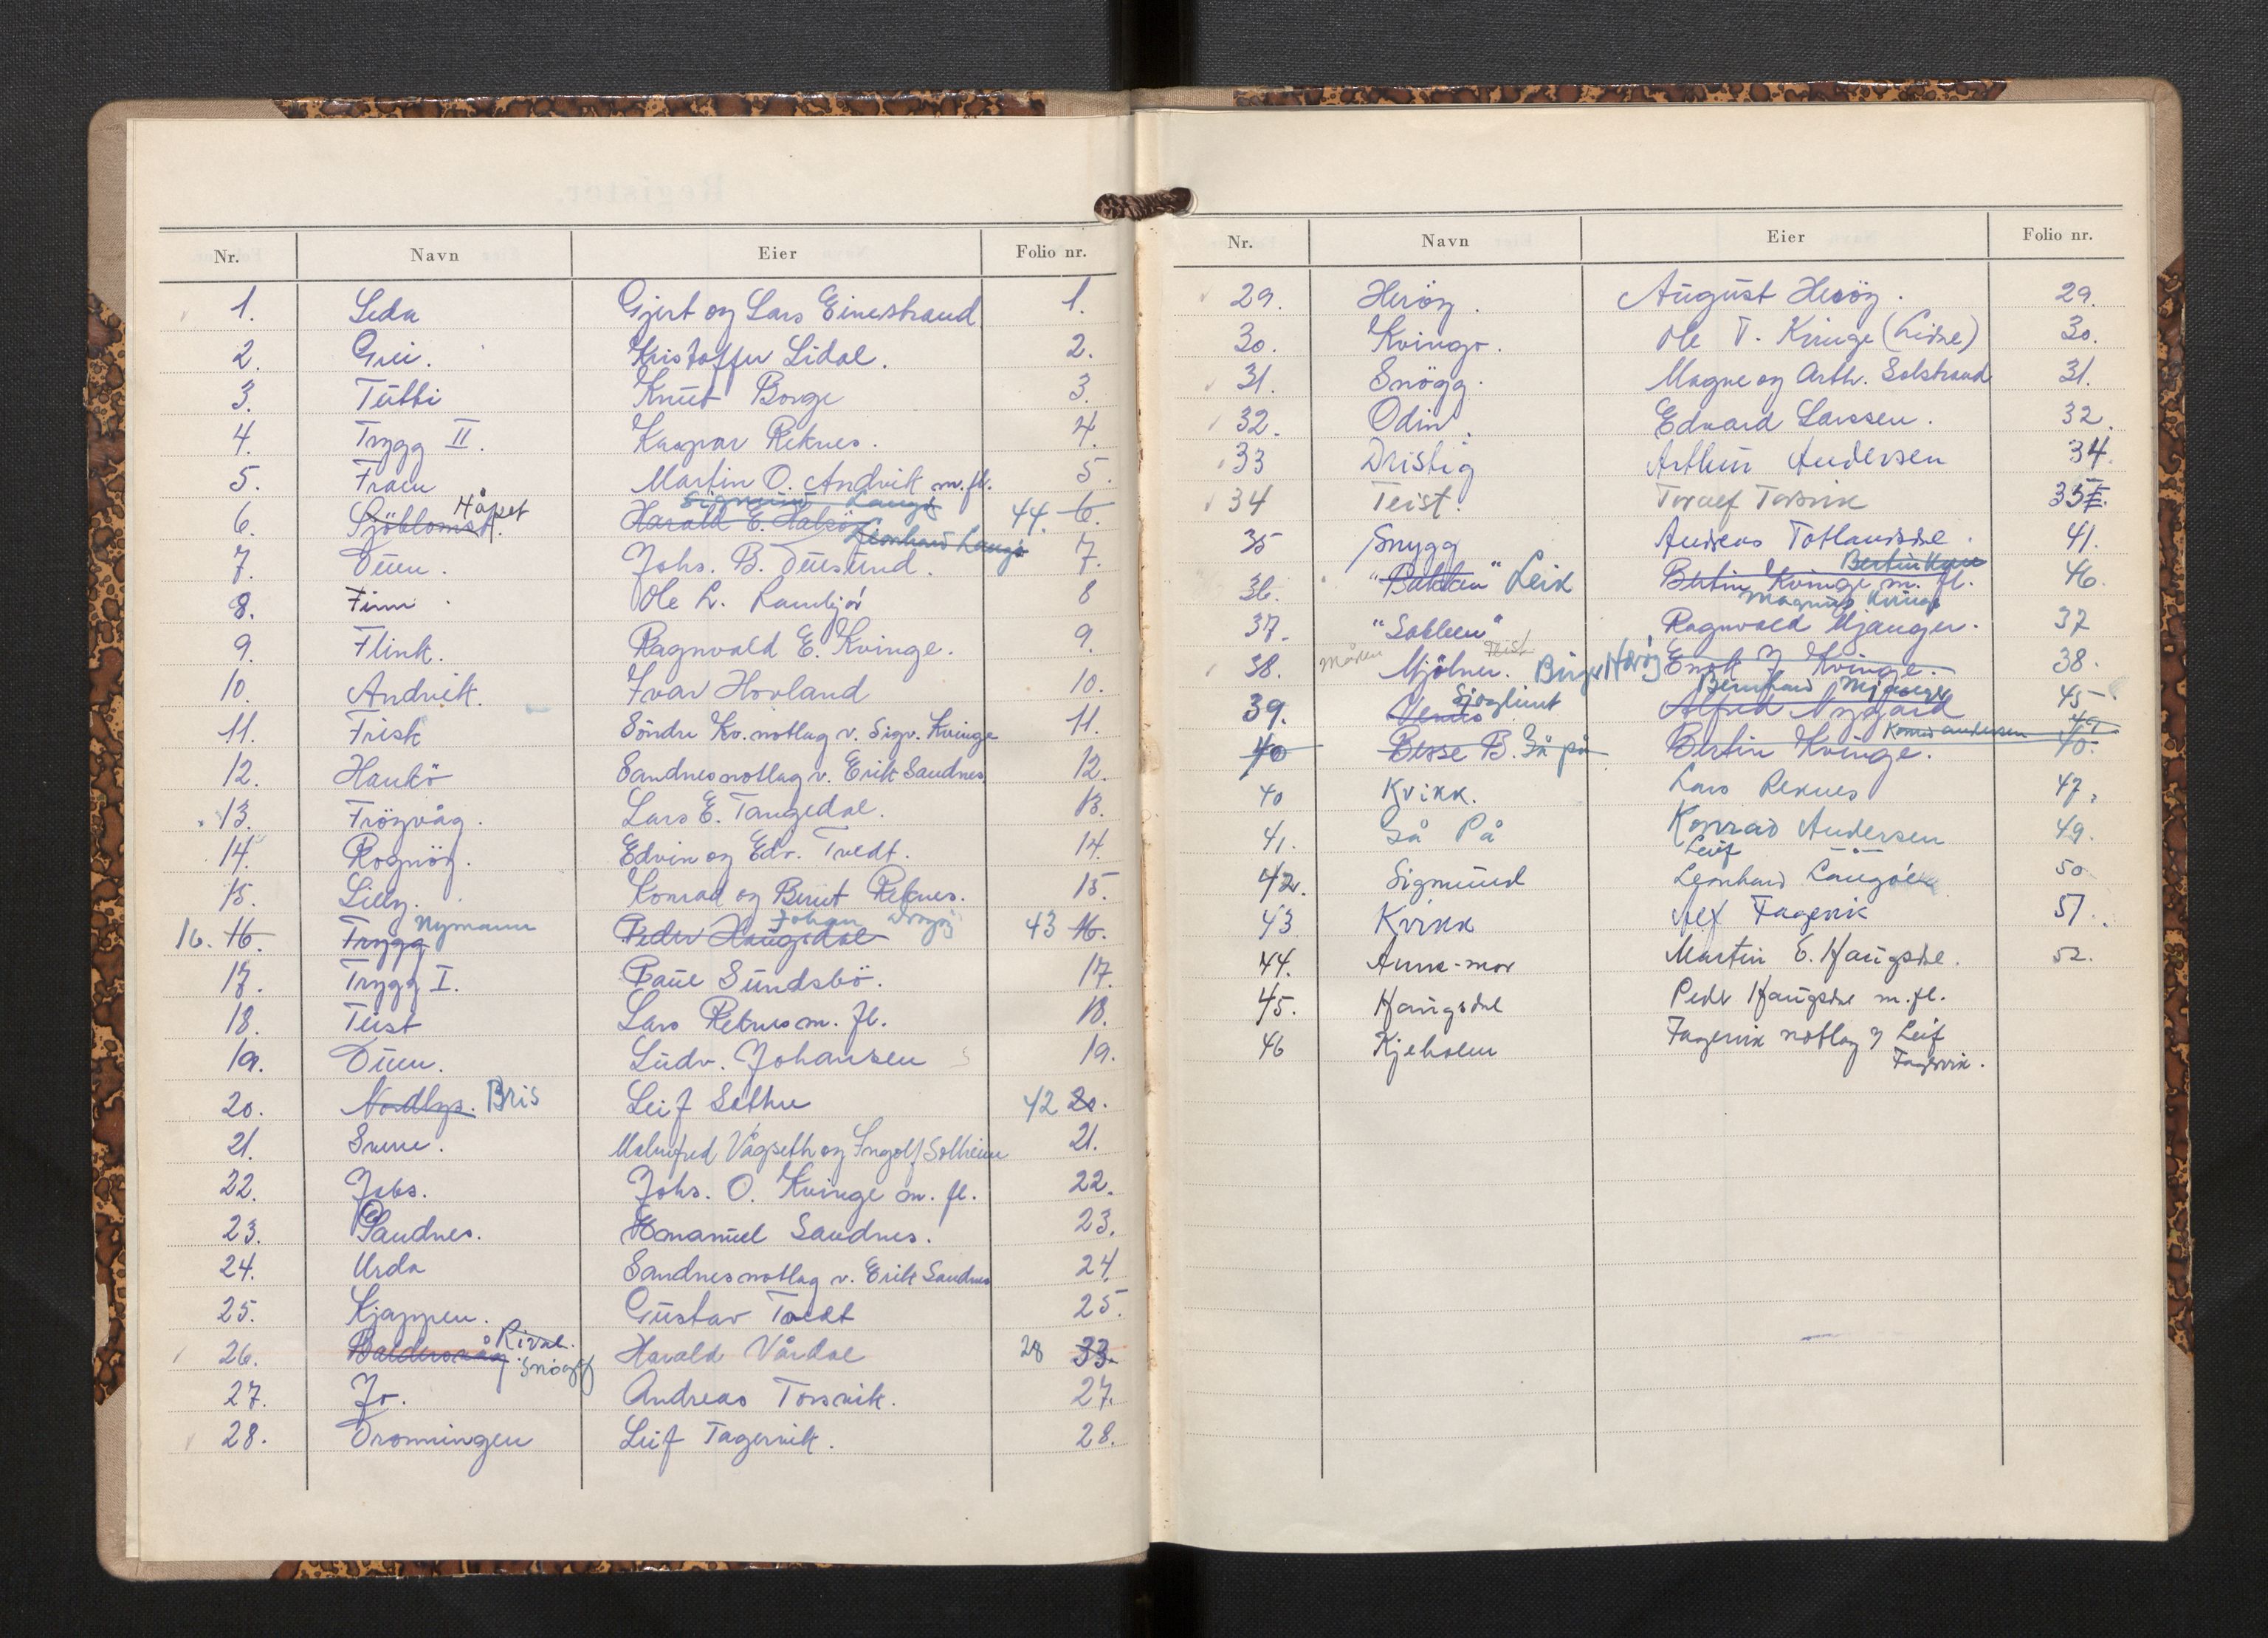 Nr. Navn Eier Folio nr.
1. Leda Gjert og Lars Einestrand 1.
2. Grei. Kristoffer Lidal. 2.
3. Tutti Knut Borge 3.
4. Trygg II. Kaspar Reknes. 4.
5. Fram Martin O. Andvik m.fl. 5.
Håpet Sigmund Langø
6. Sjöblomst. Harald E. 44. 6.
Leonhard Langø
7. Duen. Johs. B. Duesund. 7.
8. Finn Ole L. 8
9. Flink. Ragnvald E. Kvinge. 9.
10. Andvik. Ivar Hovland 10.
11. Frisk Söndre Kv. notlag v. Sigv. Kvinge 11.
12. Haukö Sandnes notlag v. Erik Sandnes 12.
13. Fröyvåg. Lars E. Tangedal. 13.
14. Rognöy. Edvin og Edv. Tvedt. 14.
15. Lilly. Konrad og Berut Reknes. 15.
Nymann Johan
16. 16. Trygg Peder Haugsdal 43 16.
17. Trygg I. Paul Sundsbö. 17.
18. Teist Lars Reknes m. fl. 18.
19. Duen. Ludv. Johansen 19.
20. Nordlys. Bris Leif Sæthre 42 20.
21. Snurre. Malmfred Vågseth og Ingolf Solheim 21.
22. Johs. Johs. O. Kvinge m. fl. 22.
23. Sandnes. Emanuel Sandnes. 23.
24. Urda Sandnes notlag v. Erik Sandnes 24.
25. Kjappen. Gustav Tvedt 25.
Rival.
26. Baldersvåg. Snögg Harald Vårdal 28 33.
27. Jo. Andreas Torsvik. 27.
28. Dronningen Leif Fagervik. 28.
Nr. Navn Eier Folio nr.
29. Heröy. August Heröy. 29.
30. Kvingo. Ole T. Kvinge (Lidal) 30.
31. Snögg. Magne og Arth. Solstrand 31.
32. Odin. Edvard Larssen. 32.
33 Dristig Arthur Andersen 34.
34 Teist. Toralf Torsvik 35
35 Snygg Andreas Totlandsdal. 41.
36. "Bakken" Leik Bertin Kvinge m. fl. 46.
Magnus Kvinge
37. "Sablen" Ragnvald Mjanger. 37
Måken Teist
38. Mjölner. Birger Herøy Enok J. Kvinge. 38.
Sjøglimt Bernhard Mjanger
39. Venus Alfred Nygård 45
Konrad Andersen 49
40 Besse B. Gå på Bertin Kvinge. 40.
40 Kvikk. Lars Reknes 47.
41. Gå På Konrad Andersen 49.
Leif
42. Sigmund Leonhard Langöen 50
43 Kvikk Alf Fagervik 51.
44. Anne-mor Martin E. Haugsdal. 52.
45. Haugsdal Peder Haugsdal m.fl.
46 Kjeholm Fagervik notlag v Leif
Fagervik.